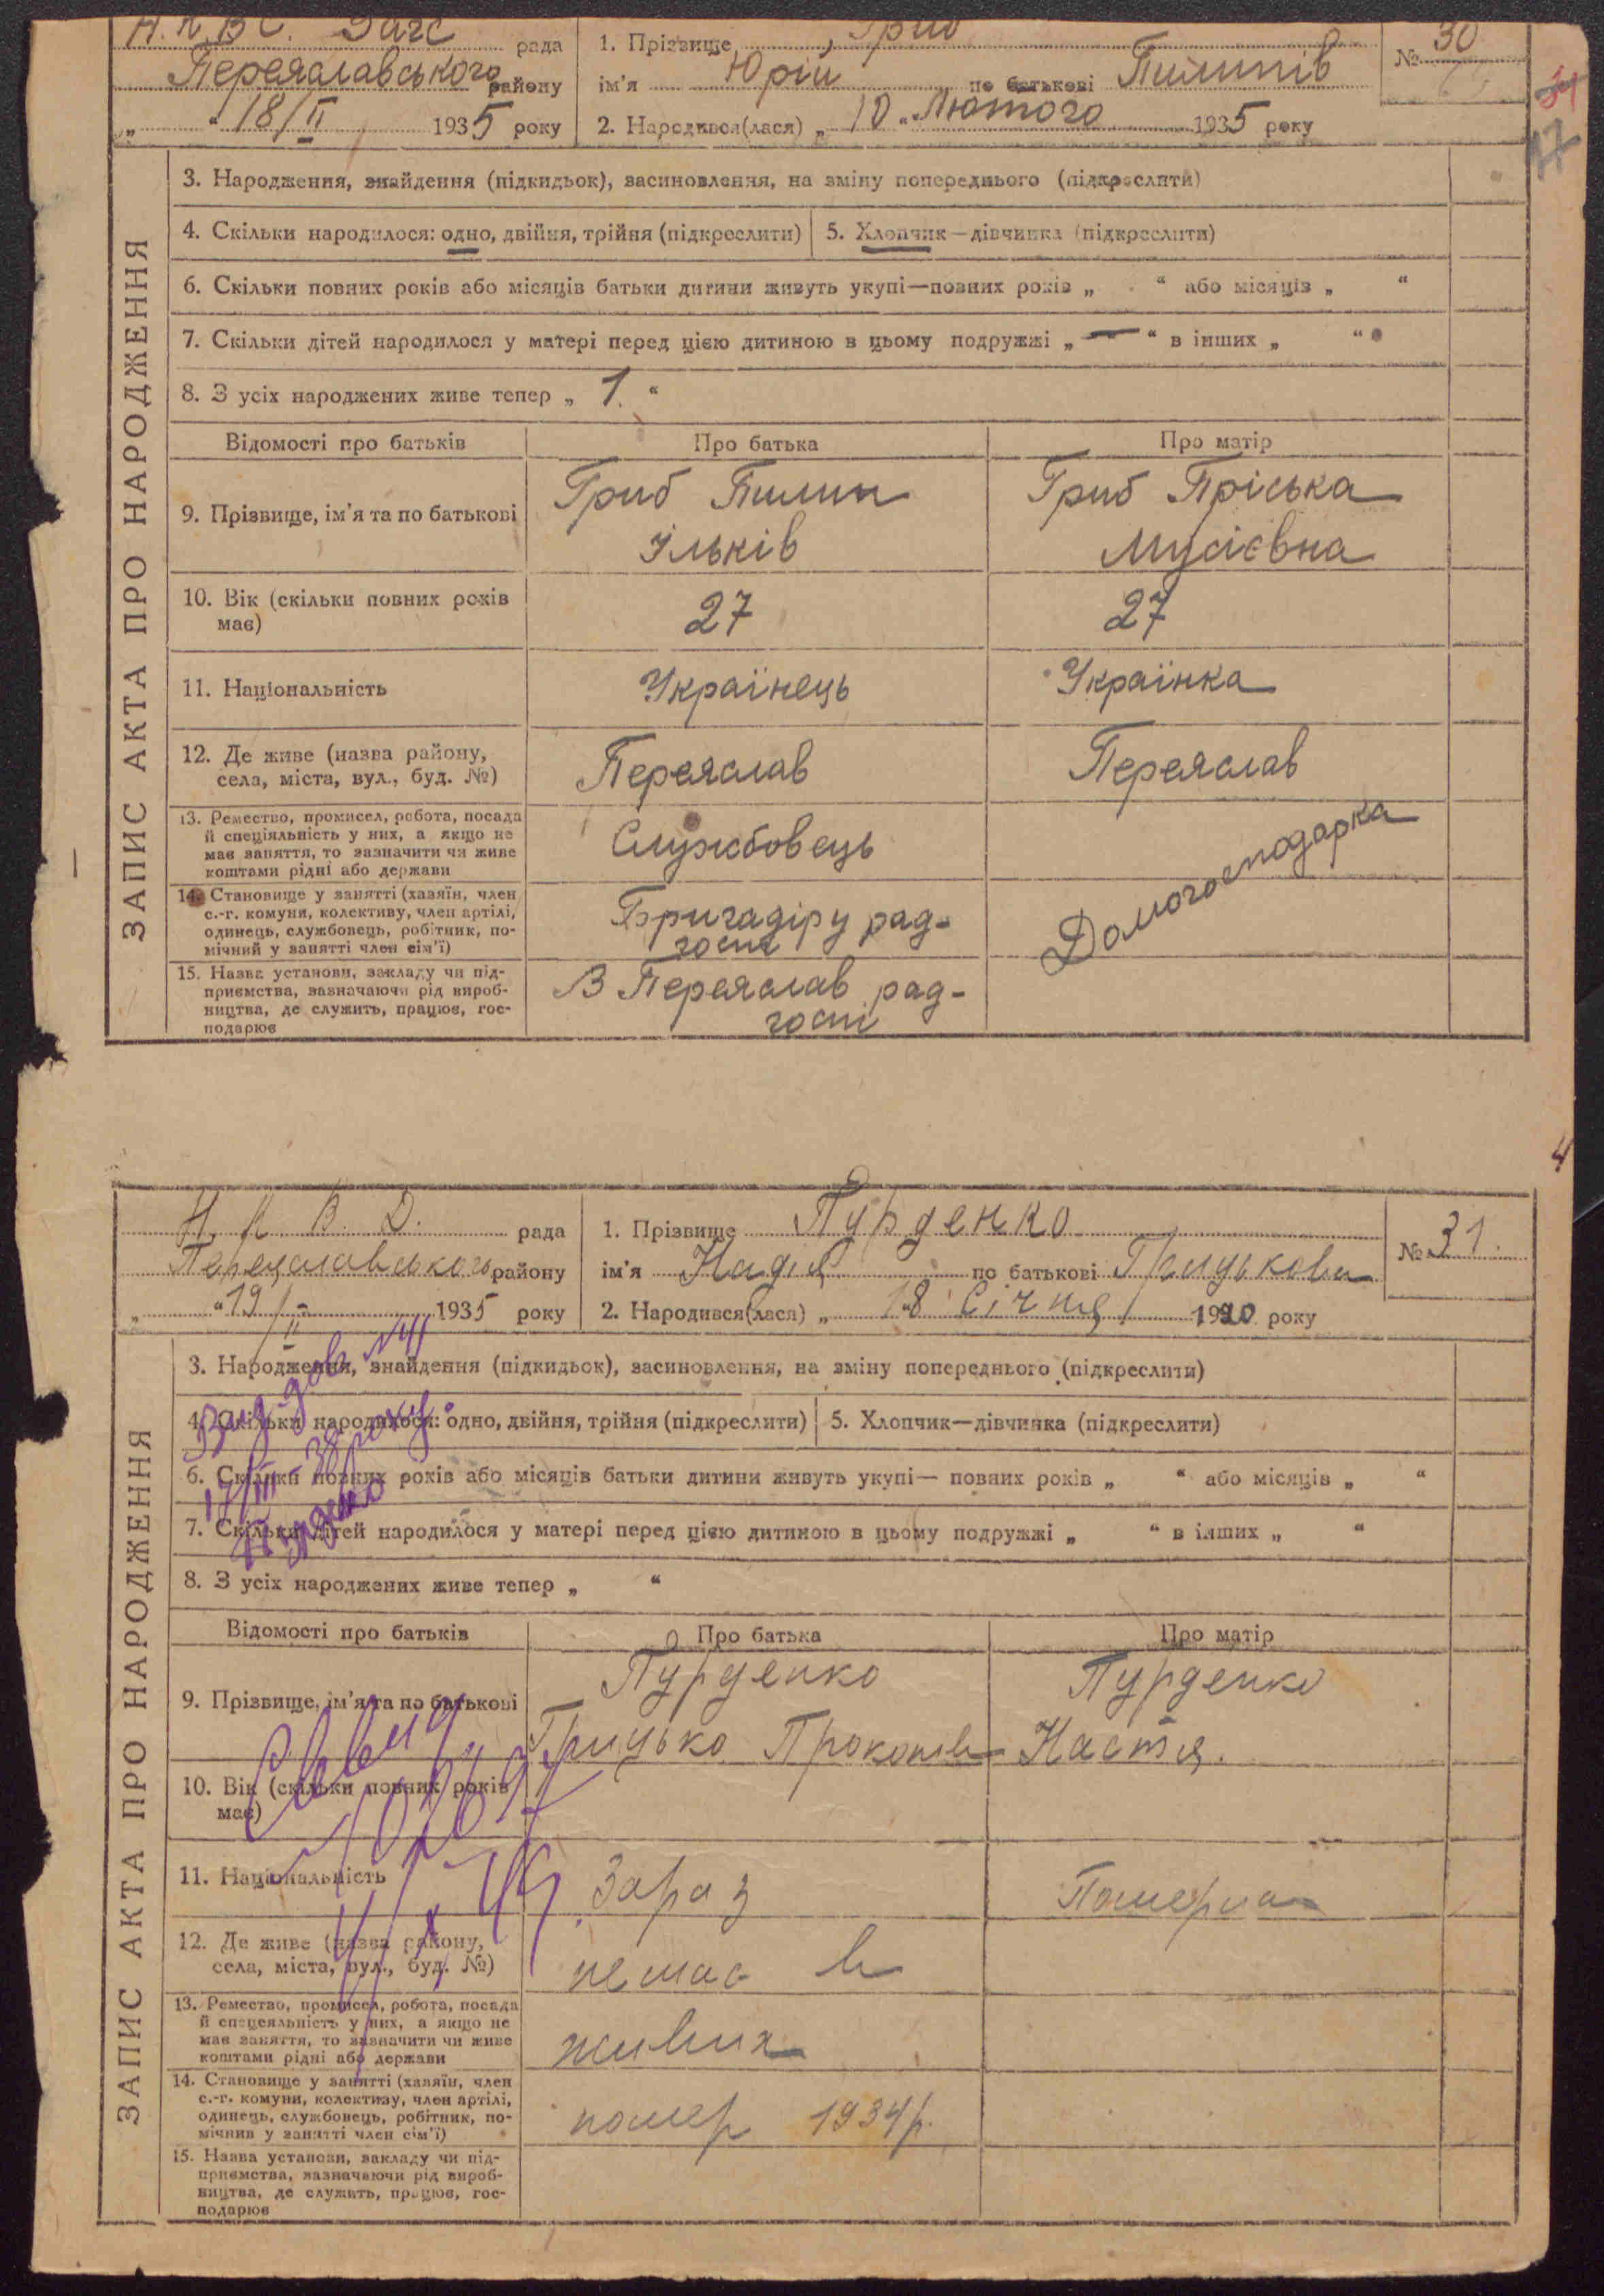 Н.К.В.С. Загс рада
Переяславського району
„ “ 18/II 1935 року
1. Прізвище Гриб
ім'я Юрій по батькові Пилипів
2. Народився(лася) „ 10 „ Лютого 1935 року
№ 30
31
17
ЗАПИС АКТА ПРО НАРОДЖЕННЯ
3. Народження, знайдення (підкидьок), засиновлення, на зміну попереднього (підкреслити)
4. Скільки народилося: одно, двійня, трійня (підкреслити) 5. Хлопчик—дівчинка (підкреслити)
6. Скільки повних років або місяців батьки дитини живуть укупі—повних років „ “ або місяців „ “
7. Скільки дітей народилося у матері перед цією дитиною в цьому подружжі „ — “ в інших „ “
8. З усіх народжених живе тепер „ 1. “
Відомості про батьків Про батька Про матір
9. Прізвище, ім'я та по батькові
Гриб Пилип
Ільків
Гриб Пріська
Мусієвна
10. Вік (скільки повних років
має)
27
27
11. Національність
Українець
Українка
12. Де живе (назва району,
села, міста, вул., буд. №)
Переяслав
Переяслав
13. Ремество, промисел, робота, посада
й спеціяльність у них, а якщо не
має заняття, то зазначити чи живе
коштами рідні або держави
Службовець
Домогосподарка
14. Становище у занятті (хазяїн, член
с.-г. комуни, колективу, член артілі,
одинець, службовець, робітник, по-
мічний у занятті член сім'ї)
Бригадіру рад-
госпі
15. Назва установи, закладу чи під-
приємства, зазначаючи рід вироб-
ництва, де служить, працює, гос-
подарює
В Переяслав рад-
госпі
4
Н. К. В. Д. рада
Переяславського району
„ “ 19/II 1935 року
1. Прізвище Пурденко
ім'я Надія по батькові Грицькови
2. Народився(лася) „ 18 “ Січня 1920 року
№ 31.
ЗАПИС АКТА ПРО НАРОДЖЕННЯ
3. Народження, знайдення (підкидьок), засиновлення, на зміну попереднього (підкреслити)
4. Скільки народилося: одно, двійня, трійня (підкреслити) 5. Хлопчик—дівчинка (підкреслити)
6. Скільки повних років або місяців батьки дитини живуть укупі— повних років „ “ або місяців „ “
7. Скільки дітей народилося у матері перед цією дитиною в цьому подружжі „ “ в інших „ “
8. З усіх народжених живе тепер „ “
Відомості про батьків Про батька Про матір
9. Прізвище, ім'я та по батькові
Пурденко
Грицько Прокопів
Пурденко
Настя.
10. Вік (скільки повних років
має)
11. Національність
Зараз
Померла
12. Де живе (назва району,
села, міста, вул., буд. №)
немає в
13. Ремество, промисел, робота, посада
й спецеяльність у них, а якщо не
має заняття, то зазначити чи живе
коштами рідні або держави
живих
14. Становище у занятті (хазяїн, член
с.-г. комуни, колективу, член артілі,
одинець, службовець, робітник, по-
мічний у занятті член сім'ї)
помер 1934 р.
15. Назва установи, закладу чи під-
приємства, зазначаючи рід вироб-
ництва, де служить, працює, гос-
подарює